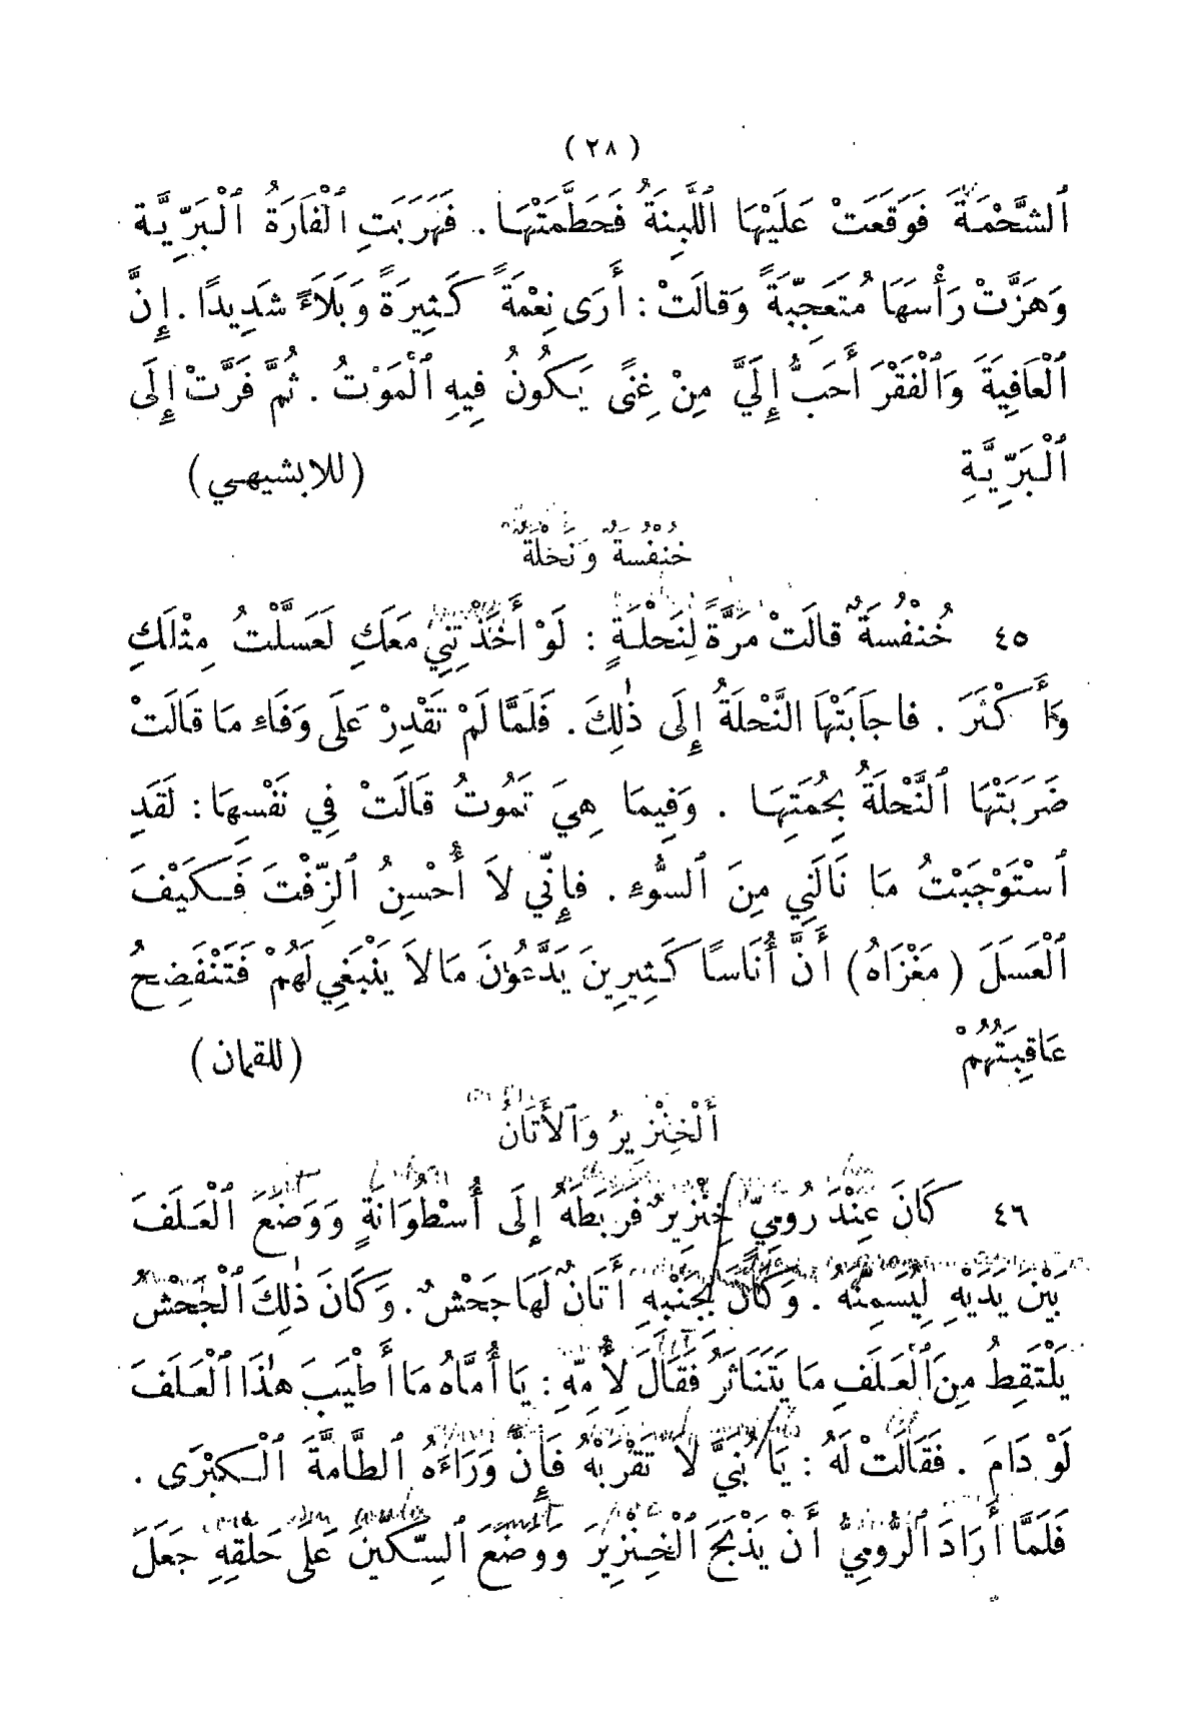 ( ٢٨ )
ٱلشَّحْمَةَ فَوَقَعَتْ عَلَيْهَا ٱللَّبِنَةُ فَحَطَّمَتْهَا . فَهَرَبَتِ ٱلْفَارَةُ ٱلْبَرِّيَّة
وَهَزَّتْ رَأْسَهَا مُتَعَجِّبَةً وَقالَتْ : أَرَى نِعْمَةً كَثِيرَةً وَبَلَاءً شَدِيدًا . إِنَّ
ٱلْعَافِيَةَ وَٱلْفَقْرَ أَحَبُّ إِلَيَّ مِنْ غِنًى يَكُونُ فِيهِ ٱلْمَوْتُ . ثُمَّ فَرَّتْ إِلَى
ٱلْبَرِّيَّةِ (للابشيهي)
خُنْفُسَةٌ وَنَحْلَةٌ
٤٥ خُنْفُسَةٌ قالَتْ مَرَّةً لِنَحْلَةٍ : لَوْ أَخَذْتِنِي مَعَكِ لَعَسَّلْتُ مِثْلَكِ
وَأَكْثَرَ . فاجَابَتْهَا النَّحْلَةُ إِلَى ذٰلِكَ . فَلَمَّا لَمْ تَقْدِرْ عَلَى وَفَاءِ مَا قَالَتْ
ضَرَبَتْهَا ٱلنَّحْلَةُ بِحُمَتِهَا . وَفِيمَا هِيَ تَمُوتُ قَالَتْ فِي نَفْسِهَا : لَقَدِ
ٱسْتَوْجَبْتُ مَا نَالَنِي مِنَ ٱلسُّوءِ . فإِنِّي لَا أُحْسِنُ ٱلزِّفْتَ فَكَيْفَ
ٱلْعَسَلَ (مَغْزَاهُ) أَنَّ أُنَاسًا كَثِيرِينَ يَدَّعُونَ مَا لَا يَنْبَغِي لَهُمْ فَتَنْفَضِحُ
عَاقِبَتُهُمْ (للقمان)
أَلْخِنْزِيرُ وَٱلْأَتَانُ
٤٦ كَانَ عِنْدَ رُومِيٍّ خِنْزِيرٌ فَرَبَطَهُ إِلَى أُسْطُوَانَةٍ وَوَضَعَ ٱلْعَلَفَ
بَيْنَ يَدَيْهِ لِيُسَمِّنَهُ . وَكَانَ بِجَنْبِهِ أَتَانٌ لَهَا جَحْشٌ . وَكَانَ ذٰلِكَ ٱلْجَحْشُ
يَلْتَقِطُ مِنَ ٱلْعَلَفِ مَا يَتَنَاثَرُ فَقَالَ لِأُمِّهِ : يَا أُمَّاهُ مَا أَطْيَبَ هٰذَا ٱلْعَلَفَ
لَوْ دَامَ . فَقَالَتْ لَهُ : يَا بُنَيَّ لَا تَقْرَبْهُ فَإِنَّ وَرَاءَهُ ٱلطَّامَّةَ ٱلْكُبْرَى .
فَلَمَّا أَرَادَ ٱلرُّومِيُّ أَنْ يَذْبَحَ ٱلْخِنْزِيرَ وَوَضَعَ ٱلسِّكِّينَ عَلَى حَلْقِهِ جَعَلَ